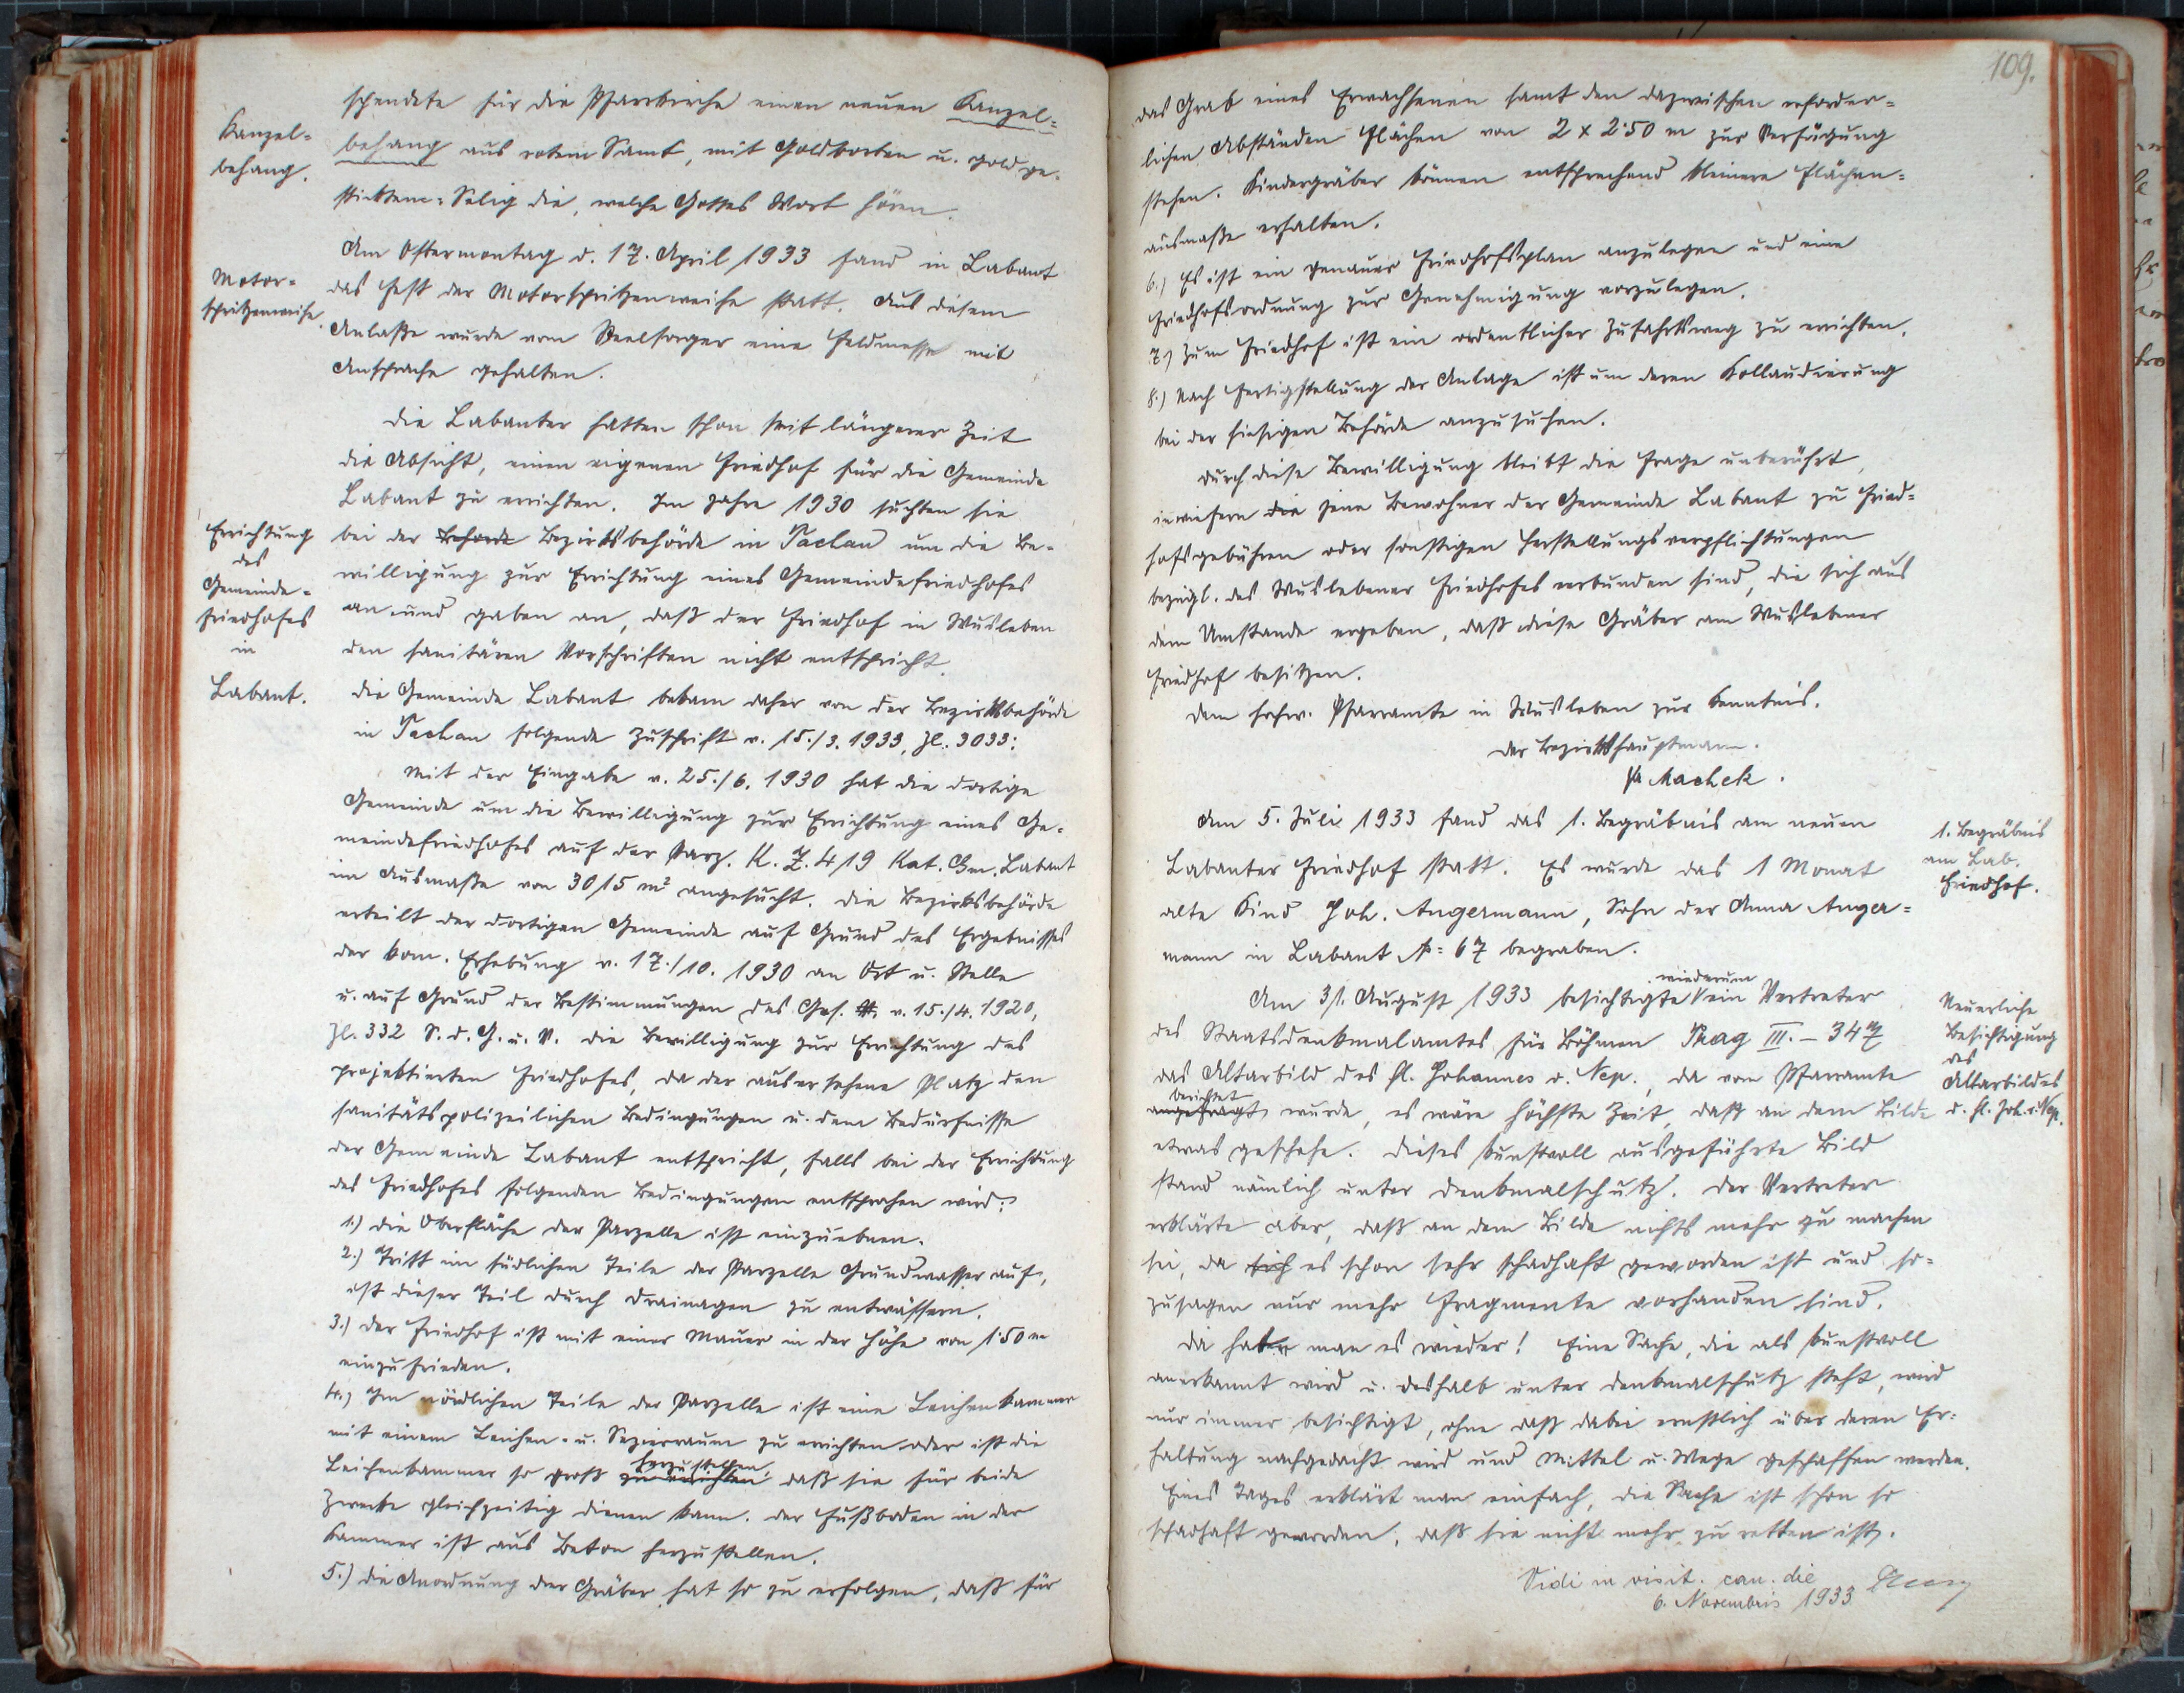 spendete für die Pfarrkirche einen neuen Kanzel=
Kanzel=
behang.
behang aus rotem Samt, mit Goldborten u. gold ge-
sticktem: Selig die, welche Gottes Wort hören.
Motor=
spritzenweihe.
Am Ostermontag d. 17. April 1933 fand in Labant
das Fest der Motorspritzenweihe statt. Aus diesem
Anlaße wurde vom Seelsorger eine Feldmesse mit
Ansprache gehalten.
Die Labanter hatten schon seit längerer Zeit
die Absicht, einen eigenen Friedhof für die Gemeinde
Labant zu errichten. Im Jahre 1930 suchten sie
Errichtung
des
Gemeinde=
friedhofes
in
Labant.
bei der Behörde Bezirksbehörde in Tachau um die Be-
willigung zur Errichtung eines Gemeindefriedhofes
an und gaben an, daß der Friedhof in Wusleben
den sanitären Vorschriften nicht entspricht.
Die Gemeinde Labant bekam daher von der Bezirksbehörde
in Tachau folgende Zuschrift v. 15./3. 1933, Zl. 3033:
Mit der Eingabe v. 25./6. 1930 hat die dortige
Gemeinde um die Bewilligung zur Errichtung eines Ge-
meindefriedhofes auf der Parz. K. Z. 419 Kat. Gm. Labant
im Ausmaße von 3015 m² angesucht. Die Bezirksbehörde
erteilt der dortigen Gemeinde auf Grund des Ergebnisses
der kom. Erhebung v. 17./10. 1930 an Ort u. Stelle
u. auf Grund der Bestimmungen des Ges. v. 15./4. 1920,
Zl. 332 S. d. G. u. V. die Bewilligung zur Errichtung des
projektierten Friedhofes, da der ausersehene Platz den
sanitätspolizeilichen Bedingungen u. dem Bedürfnisse
der Gemeinde Labant entspricht, falls bei der Errichtung
des Friedhofes folgenden Bedingungen entsprochen wird:
1.) Die Oberfläche der Parzelle ist einzuebnen.
2.) Tritt im südlichen Teile der Parzelle Grundwasser auf,
ist dieser Teil durch Drainagen zu entwässern.
3.) Der Friedhof ist mit einer Mauer in der Höhe von 1·50 m
einzufrieden.
4.) Im nördlichen Teile der Parzelle ist eine Leichenkammer
mit einem Leichen- u. Sezierraum zu errichten oder ist die
herzustellen,
Leichenkammer so groß zu errichten daß sie für beide
Zwecke gleichzeitig dienen kann. Der Fußboden in der
Kammer ist aus Beton herzustellen.
5.) Die Anordnung der Gräber hat so zu erfolgen, daß für
109.
das Grab eines Erwachsenen samt den dazwischen erforder=
lichen Abständen Flächen von 2 x 2·50 m zur Verfügung
stehen. Kindergräber können entsprechend kleinere Flächen=
ausmaße erhalten.
6.) Es ist ein genauer Friedhofsplan anzulegen und eine
Friedhofsordnung zur Genehmigung vorzulegen.
7.) Zum Friedhof ist ein ordentlicher Zufahrtsweg zu errichten.
8.) Nach Fertigstellung der Anlage ist um deren Kollaudierung
bei der hiesigen Behörde anzusuchen.
Durch diese Bewilligung bleibt die Frage unberührt,
inwiefern die jene Bewohner der Gemeinde Labant zu Fried=
hofsgebühren oder sonstigen Herstellungsverpflichtungen
bezügl. des Wuslebener Friedhofes verbunden sind, die sich aus
dem Umstande ergeben, daß diese Gräber am Wuslebener
Friedhof besitzen.
Dem hochw. Pfarramte in Wusleben zur Kenntnis.
Der Bezirkshauptmann.
Machek.
Am 5. Juli 1933 fand das 1. Begräbnis am neuen
1. Begräbnis
am Lab.
Friedhof.
Labanter Friedhof statt. Es wurde das 1 Monat
alte Kind Joh. Angermann, Sohn der Anna Anger=
mann in Labant N= 67 begraben.
wiederum
Am 31. August 1933 besichtigte ein Vertreter
Neuerliche
Besichtigung
des
Altarbildes
d. hl. Joh. v. Nep.
des Staatsdenkmalamtes für Böhmen Prag III. – 347
das Altarbild des hl. Johannes v. Nep., da vom Pfarramte
berichtet
angefragt wurde, es wäre höchste Zeit, daß an dem Bilde
etwas geschehe. Dieses kunstvoll ausgeführte Bild
stand nämlich unter Denkmalschutz. Der Vertreter
erklärte aber, daß an dem Bilde nichts mehr zu machen
sei, da sich es schon sehr schadhaft geworden ist und so=
zusagen nur mehr Fragmente vorhanden sind.
Da haben man es wieder! Eine Sache, die als kunstvoll
anerkannt wird u. deshalb unter Denkmalschutz steht, wird
nur immer besichtigt, ohne daß dabei ernstlich über deren Er=
haltung nachgedacht wird und Mittel u. Wege geschaffen werden.
Eines Tages erklärt man einfach, die Sache ist schon so
schadhaft geworden, daß sie nicht mehr zu retten ist.
Vidi in visit. can. die
6. Novembris 1933